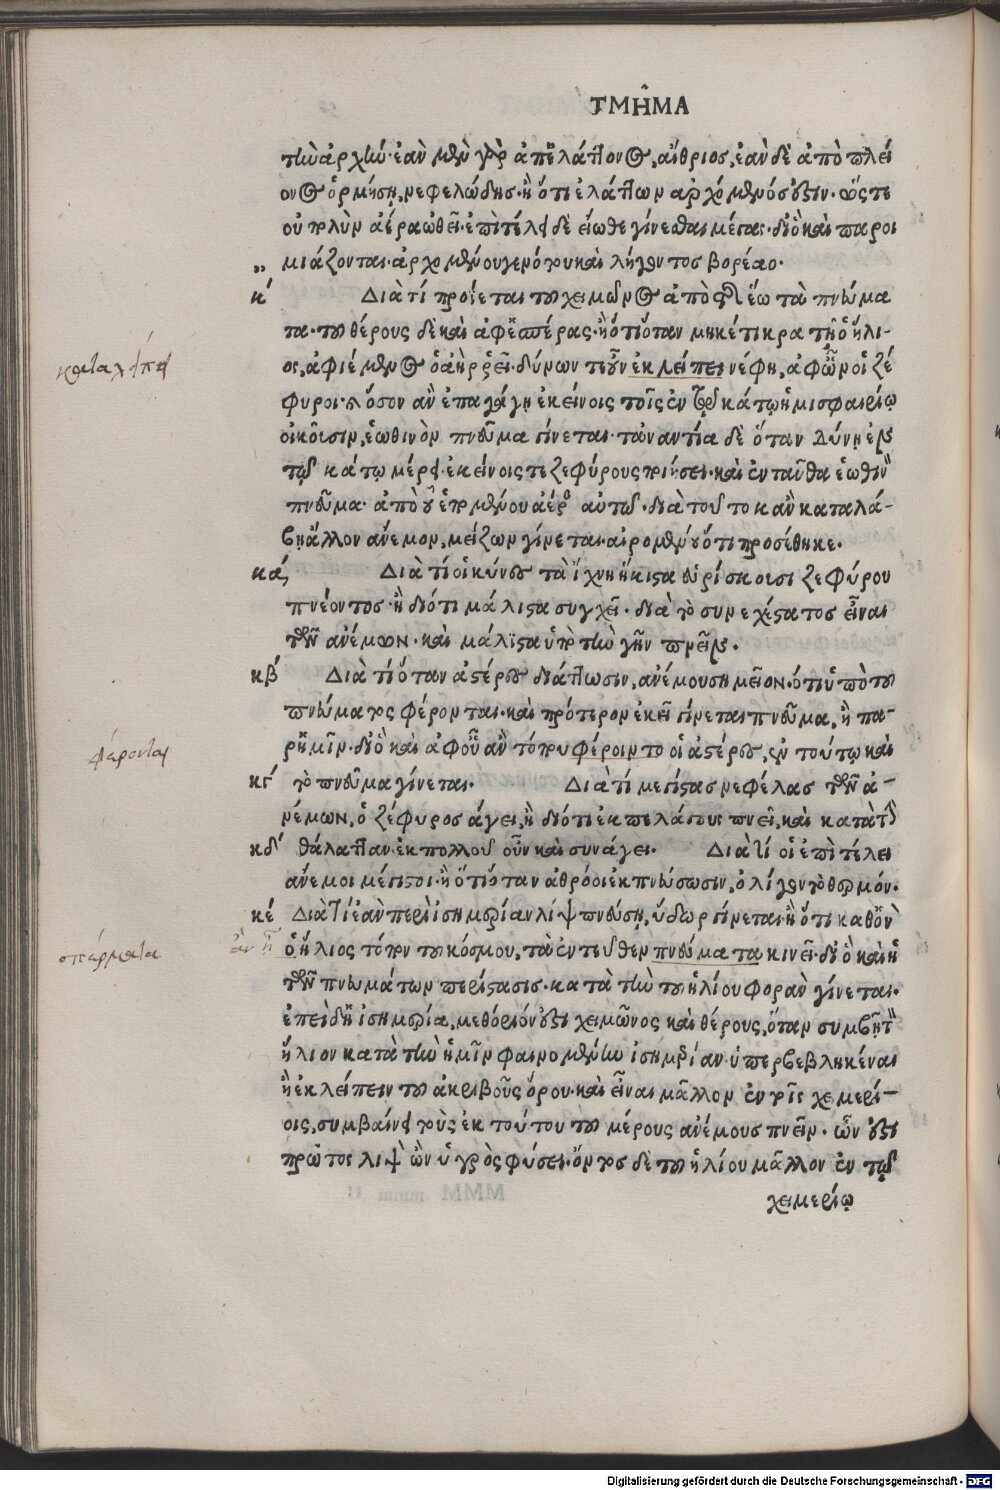 ΤΜΗ͂ΜΑ
τὴν ἀρχήν· ἐὰν μὲν γὰρ ἀπ' ἐλάττονος, αἴθριος, ἐὰν δὲ ἀπὸ πλεί
ονος ὁρμήσῃ, νεφελώδης. ἢ ὅτι ἐλάττων ἀρχόμενός ἐστιν. ὥστε
οὐ πολὺν ἀέρα ὠθεῖ. ἐπὶ τέλει δὲ εἴωθε γίνεσθαι μέγας. διὸ καὶ παροι
μιάζονται. ἀρχομένου γε νότου καὶ λήγοντος βορέαο.
κ΄ Διὰ τί προΐεται τοῦ χειμῶνος ἀπὸ τῆς ἕω τὰ πνεύμα
τα. τοῦ θέρους δὲ καὶ ἀφ' ἑσπέρας. ἢ ὅτι ὅταν μηκέτι κρατῇ ὁ ἥλι-
ος, ἀφιέμενος ὁ ἀὴρ ῥεῖ. δύνων τε οὖν ἐκλείπει νέφη, ἀφ' ὧν οἱ ζέ
καταλείπει
φυροι. καὶ ὅσον ἂν ἐπαγάγῃ ἐκείνοις τοῖς ἐν τῷ κάτω ἡμισφαιρίῳ
οἰκοῦσιν, ἑωθινὸν πνεῦμα γίνεται. τἀναντία δὲ ὅταν δύνῃ ἐν
τῷ κάτω μέρει ἐκείνοις τε ζεφύρους ποιήσει. καὶ ἐνταῦθα ἑωθινὸν
πνεῦμα. ἀπὸ τοῦ ἑπομένου ἀέρος αὐτῷ. διὰ τοῦτο κἂν καταλά-
βῃ ἄλλον ἄνεμον, μείζων γίνεται. αἱρομένου ὅτι προσέθηκε.
κά Διὰ τί οἱ κύνες τὰ ἴχνη ἥκιστα εὑρίσκουσι ζεφύρου
πνέοντος. ἢ διότι μάλιστα συγχεῖ. διὰ τὸ συνεχέστατος εἶναι
τῶν ἀνέμων. καὶ μάλιστα ὑπὸ τὴν γῆν πνεῖν.
κβ΄ Διὰ τί ὅταν ἀστέρες διάττωσιν, ἀνέμου σημεῖον. ὅτι ὑπὸ τοῦ
πνεύματος φέρονται. καὶ πρότερον ἐκεῖ γίνεται πνεῦμα, ἢ πα-
ρ' ἡμῖν. διὸ καὶ ἀφ' οὗ ἂν τόπου φέροιντο οἱ ἀστέρες, ἐν τούτῳ καὶ
φέρονται
κγ΄ τὸ πνεῦμα γίνεται. Διὰ τί μεγίστας νεφέλας τῶν ἀ-
νέμων, ὁ ζέφυρος ἄγει, ἢ διότι ἐκ πελάγους πνεῖ, καὶ κατὰ τὴν
κδ΄ θάλατταν. ἐκ πολλοῦ οὖν καὶ συνάγει. Διὰ τί οἱ ἐπὶ τέλει
ἄνεμοι μέγιστοι. ἢ ὅτι ὅταν ἀθρόοι ἐκπνεύσωσιν, ὀλίγον τὸ θερμόν.
κέ Διὰ τί ἐὰν περὶ ἰσημερίαν λὶψ πνεύσῃ, ὕδωρ γίνεται. ἢ ὅτι καθ' ὃν
ἂν ᾖ ὁ ἥλιος τόπον τοῦ κόσμου, τὰ ἐντεῦθεν πνεύματα κινεῖ. διὸ καὶ ἡ
σπέρματα
τῶν πνευμάτων περίστασις. κατὰ τὴν τοῦ ἡλίου φορὰν γίνεται.
ἐπειδὴ ἰσημερία, μεθόριόν ἐστι χειμῶνος καὶ θέρους, ὅταν συμβῇ τὸν
ἥλιον κατὰ τὴν ἡμῖν φαινομένην ἰσημερίαν. ὑπερβεβληκέναι
ἢ ἐκλείπειν τοῦ ἀκριβοῦς ὅρου. καὶ εἶναι μᾶλλον ἐν τοῖς χειμερί-
οις, συμβαίνει τοὺς ἐκ τούτου τοῦ μέρους ἀνέμους πνεῖν. ὧν ἐστι
πρῶτος λὶψ ὢν ὑγρὸς φύσει. ὄντος δὲ τοῦ ἡλίου μᾶλλον ἐν τῷ
χειμερίῳ
Digitalisierung gefördert durch die Deutsche Forschungsgemeinschaft - DFG